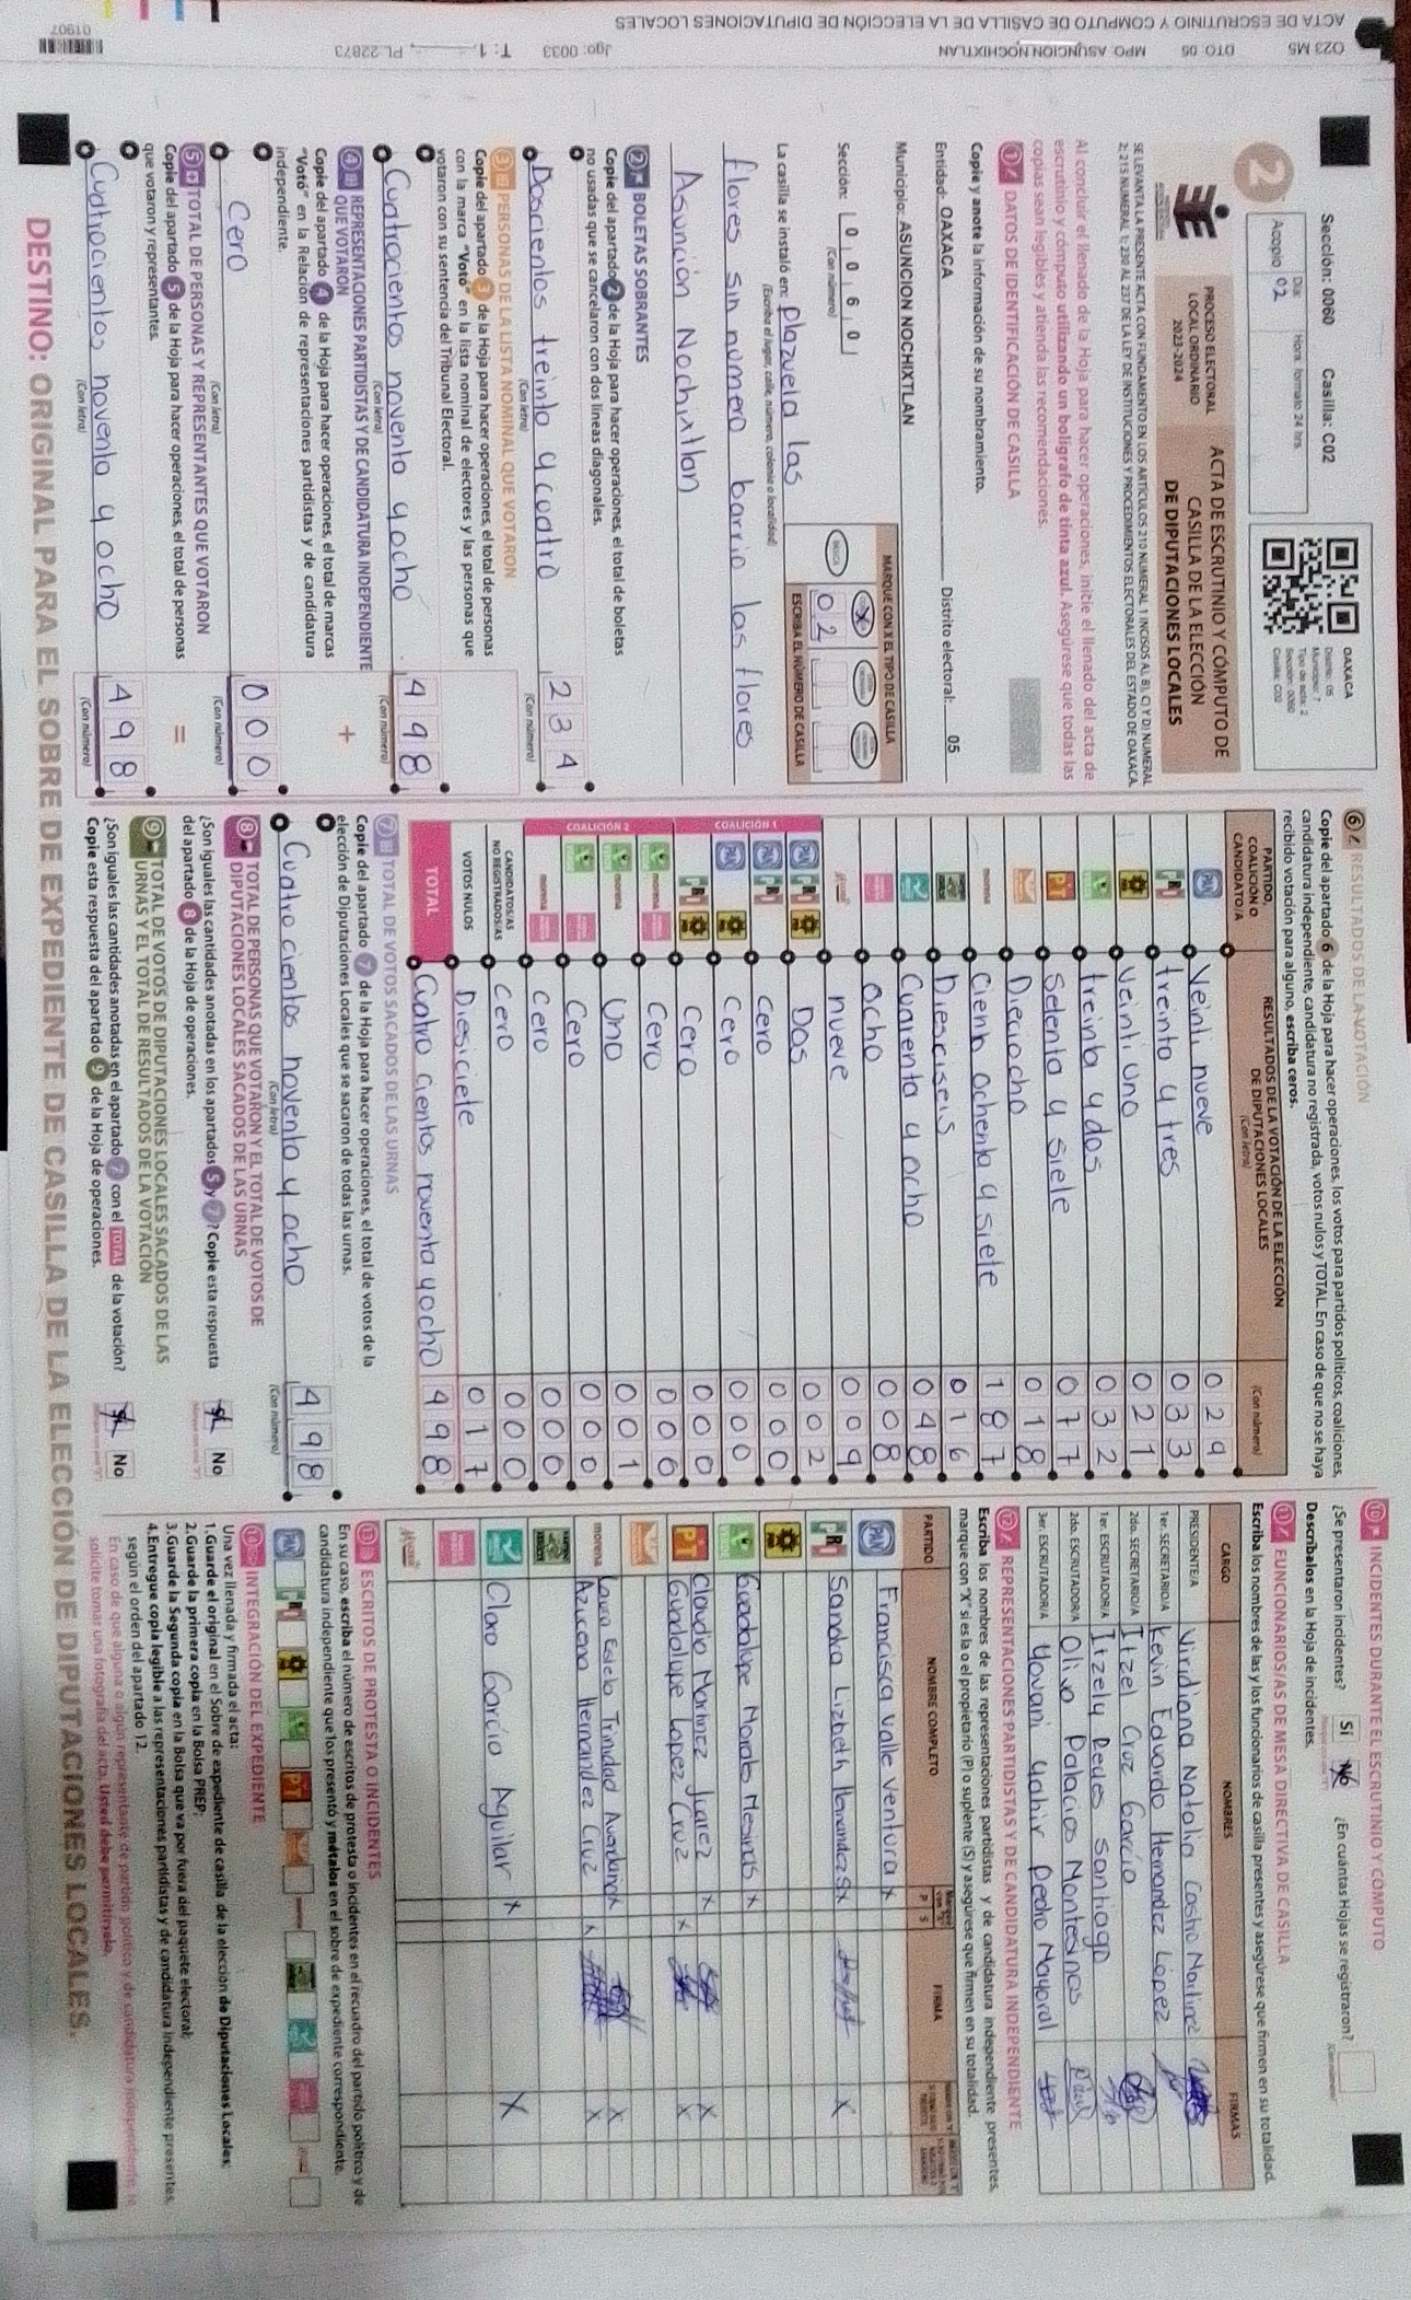 023 M5 DTO. 05 MPO. ASUNCION NOCHIXTLAN Jgo: 0033 T: 1, PL 22873
ACTA DE ESCRUTINIO Y CÓMPUTO DE CASILLA DE LA ELECCIÓN DE DIPUTACIONES LOCALES
01907
Sección: 0060 Casilla: C02
2
Día: Hora: formato 24 hrs.
Acopio 02
OAXACA
Distrito: 05
Municipio: 7
Tipo de acta: 2
Sección: 0060
Casilla: C02
PROCESO ELECTORAL
LOCAL ORDINARIO
2023-2024
ACTA DE ESCRUTINIO Y CÓMPUTO DE
CASILLA DE LA ELECCIÓN
DE DIPUTACIONES LOCALES
SE LEVANTA LA PRESENTE ACTA CON FUNDAMENTO EN LOS ARTÍCULOS 210 NUMERAL 1 INCISOS A), B), C) Y D) NUMERAL
2; 215 NUMERAL 1; 230 AL 237 DE LA LEY DE INSTITUCIONES Y PROCEDIMIENTOS ELECTORALES DEL ESTADO DE OAXACA.
Al concluir el llenado de la Hoja para hacer operaciones, inicie el llenado del acta de
escrutinio y cómputo utilizando un bolígrafo de tinta azul. Asegúrese que todas las
copias sean legibles y atienda las recomendaciones.
1 DATOS DE IDENTIFICACIÓN DE CASILLA
Copie y anote la información de su nombramiento.
Entidad: OAXACA Distrito electoral: 05
Municipio: ASUNCION NOCHIXTLAN
Sección: 0 0 6 0
(Con número)
MARQUE CON X EL TIPO DE CASILLA
BÁSICA X
0 2
ESCRIBA EL NÚMERO DE CASILLA
La casilla se instaló en: plazuela las
(Escriba el lugar, calle, número, colonia o localidad)
flores sin numero barrio las flores
Asunción Nochixtlan
2 BOLETAS SOBRANTES
Copie del apartado 2 de la Hoja para hacer operaciones, el total de boletas
no usadas que se cancelaron con dos líneas diagonales.
Doscientos treinta y cuatro 2 3 4
(Con letra) (Con número)
3 PERSONAS DE LA LISTA NOMINAL QUE VOTARON
Copie del apartado 3 de la Hoja para hacer operaciones, el total de personas
con la marca "Votó" en la lista nominal de electores y las personas que
votaron con su sentencia del Tribunal Electoral.
Cuatrocientos noventa y ocho 4 9 8
(Con letra) (Con número)
4 REPRESENTACIONES PARTIDISTAS Y DE CANDIDATURA INDEPENDIENTE
QUE VOTARON
Copie del apartado 4 de la Hoja para hacer operaciones, el total de marcas
"Votó" en la Relación de representaciones partidistas y de candidatura
independiente.
+
Cero 0 0 0
(Con letra) (Con número)
5 TOTAL DE PERSONAS Y REPRESENTANTES QUE VOTARON
Copie del apartado 5 de la Hoja para hacer operaciones, el total de personas
que votaron y representantes.
=
Cuatrocientos noventa y ocho 4 9 8
(Con letra) (Con número)
6 RESULTADOS DE LA VOTACIÓN
Copie del apartado 6 de la Hoja para hacer operaciones, los votos para partidos políticos, coaliciones,
candidatura independiente, candidatura no registrada, votos nulos y TOTAL. En caso de que no se haya
recibido votación para alguno, escriba ceros.
PARTIDO, COALICIÓN O CANDIDATO/A
RESULTADOS DE LA VOTACIÓN DE LA ELECCIÓN DE DIPUTACIONES LOCALES
(Con letra) (Con número)
PAN Veinti nueve 0 2 9
PRI treinta y tres 0 3 3
PRD Veinti uno 0 2 1
VERDE treinta y dos 0 3 2
PT Setenta y siete 0 7 7
Dieciocho 0 1 8
morena cienh ochenta y siete 1 8 7
Dieciseis 0 1 6
Cuarenta y ocho 0 4 8
ocho 0 0 8
nueve 0 0 9
COALICIÓN 1
PAN PRI PRD Dos 0 0 2
PAN PRI cero 0 0 0
PAN PRD Cero 0 0 0
PRI PRD Cero 0 0 0
COALICIÓN 2
VERDE morena Cero 0 0 0
VERDE morena Uno 0 0 1
VERDE Cero 0 0 0
morena Cero 0 0 0
CANDIDATOS/AS NO REGISTRADOS/AS Cero 0 0 0
VOTOS NULOS Diesiciete 0 1 7
TOTAL Cuatro cientos noventa y ocho 4 9 8
7 TOTAL DE VOTOS SACADOS DE LAS URNAS
Copie del apartado 7 de la Hoja para hacer operaciones, el total de votos de la
elección de Diputaciones Locales que se sacaron de todas las urnas.
Cuatro cientos noventa y ocho 4 9 8
(Con letra) (Con número)
8 TOTAL DE PERSONAS QUE VOTARON Y EL TOTAL DE VOTOS DE
DIPUTACIONES LOCALES SACADOS DE LAS URNAS
¿Son iguales las cantidades anotadas en los apartados 5 y 7? Copie esta respuesta
del apartado 8 de la Hoja de operaciones.
Sí No
9 TOTAL DE VOTOS DE DIPUTACIONES LOCALES SACADOS DE LAS
URNAS Y EL TOTAL DE RESULTADOS DE LA VOTACIÓN
¿Son iguales las cantidades anotadas en el apartado 7 con el TOTAL de la votación?
Copie esta respuesta del apartado 9 de la Hoja de operaciones.
Sí No
10 INCIDENTES DURANTE EL ESCRUTINIO Y CÓMPUTO
¿Se presentaron incidentes? Sí No ¿En cuántas Hojas se registraron?
Descríbalos en la Hoja de incidentes.
11 FUNCIONARIOS/AS DE MESA DIRECTIVA DE CASILLA
Escriba los nombres de las y los funcionarios de casilla presentes y asegúrese que firmen en su totalidad.
CARGO NOMBRES FIRMAS
PRESIDENTE/A Viridiana Natalia Castro Martinez
1er. SECRETARIO/A Kevin Eduardo Hernandez López
2do. SECRETARIO/A Itzel Cruz García
1er. ESCRUTADOR/A Itzely Dedes Santiago
2do. ESCRUTADOR/A Oliva Palacios Montesinos
3er. ESCRUTADOR/A Yovani Yahir Pedro Mayoral
12 REPRESENTACIONES PARTIDISTAS Y DE CANDIDATURA INDEPENDIENTE
Escriba los nombres de las representaciones partidistas y de candidatura independiente presentes,
marque con "X" si es la o el propietario (P) o suplente (S) y asegúrese que firmen en su totalidad.
PARTIDO NOMBRE COMPLETO P S FIRMA
PAN Francisca Valle Ventura x
PRI Sandra Lizbeth Hernandez S x X
PRD
VERDE Guadalupe Morales Mesinas x
PT Claudio Martinez Juarez x X
Guadalupe Lopez Cruz x X
morena Laura Estela Trinidad Avendaño x X
Azucena Hernandez Cruz x X
Clara García Aguilar x X
13 ESCRITOS DE PROTESTA O INCIDENTES
En su caso, escriba el número de escritos de protesta o incidentes en el recuadro del partido político y de
candidatura independiente que los presentó y métalos en el sobre de expediente correspondiente.
14 INTEGRACIÓN DEL EXPEDIENTE
Una vez llenada y firmada el acta:
1.Guarde el original en el Sobre de expediente de casilla de la elección de Diputaciones Locales;
2.Guarde la primera copia en la Bolsa PREP;
3.Guarde la Segunda copia en la Bolsa que va por fuera del paquete electoral;
4.Entregue copia legible a las representaciones partidistas y de candidatura independiente presentes,
según el orden del apartado 12.
En caso de que alguna o algún representante de partido político y de candidatura independiente, le
solicite tomar una fotografía del acta, Usted debe permitírselo.
DESTINO: ORIGINAL PARA EL SOBRE DE EXPEDIENTE DE CASILLA DE LA ELECCIÓN DE DIPUTACIONES LOCALES.